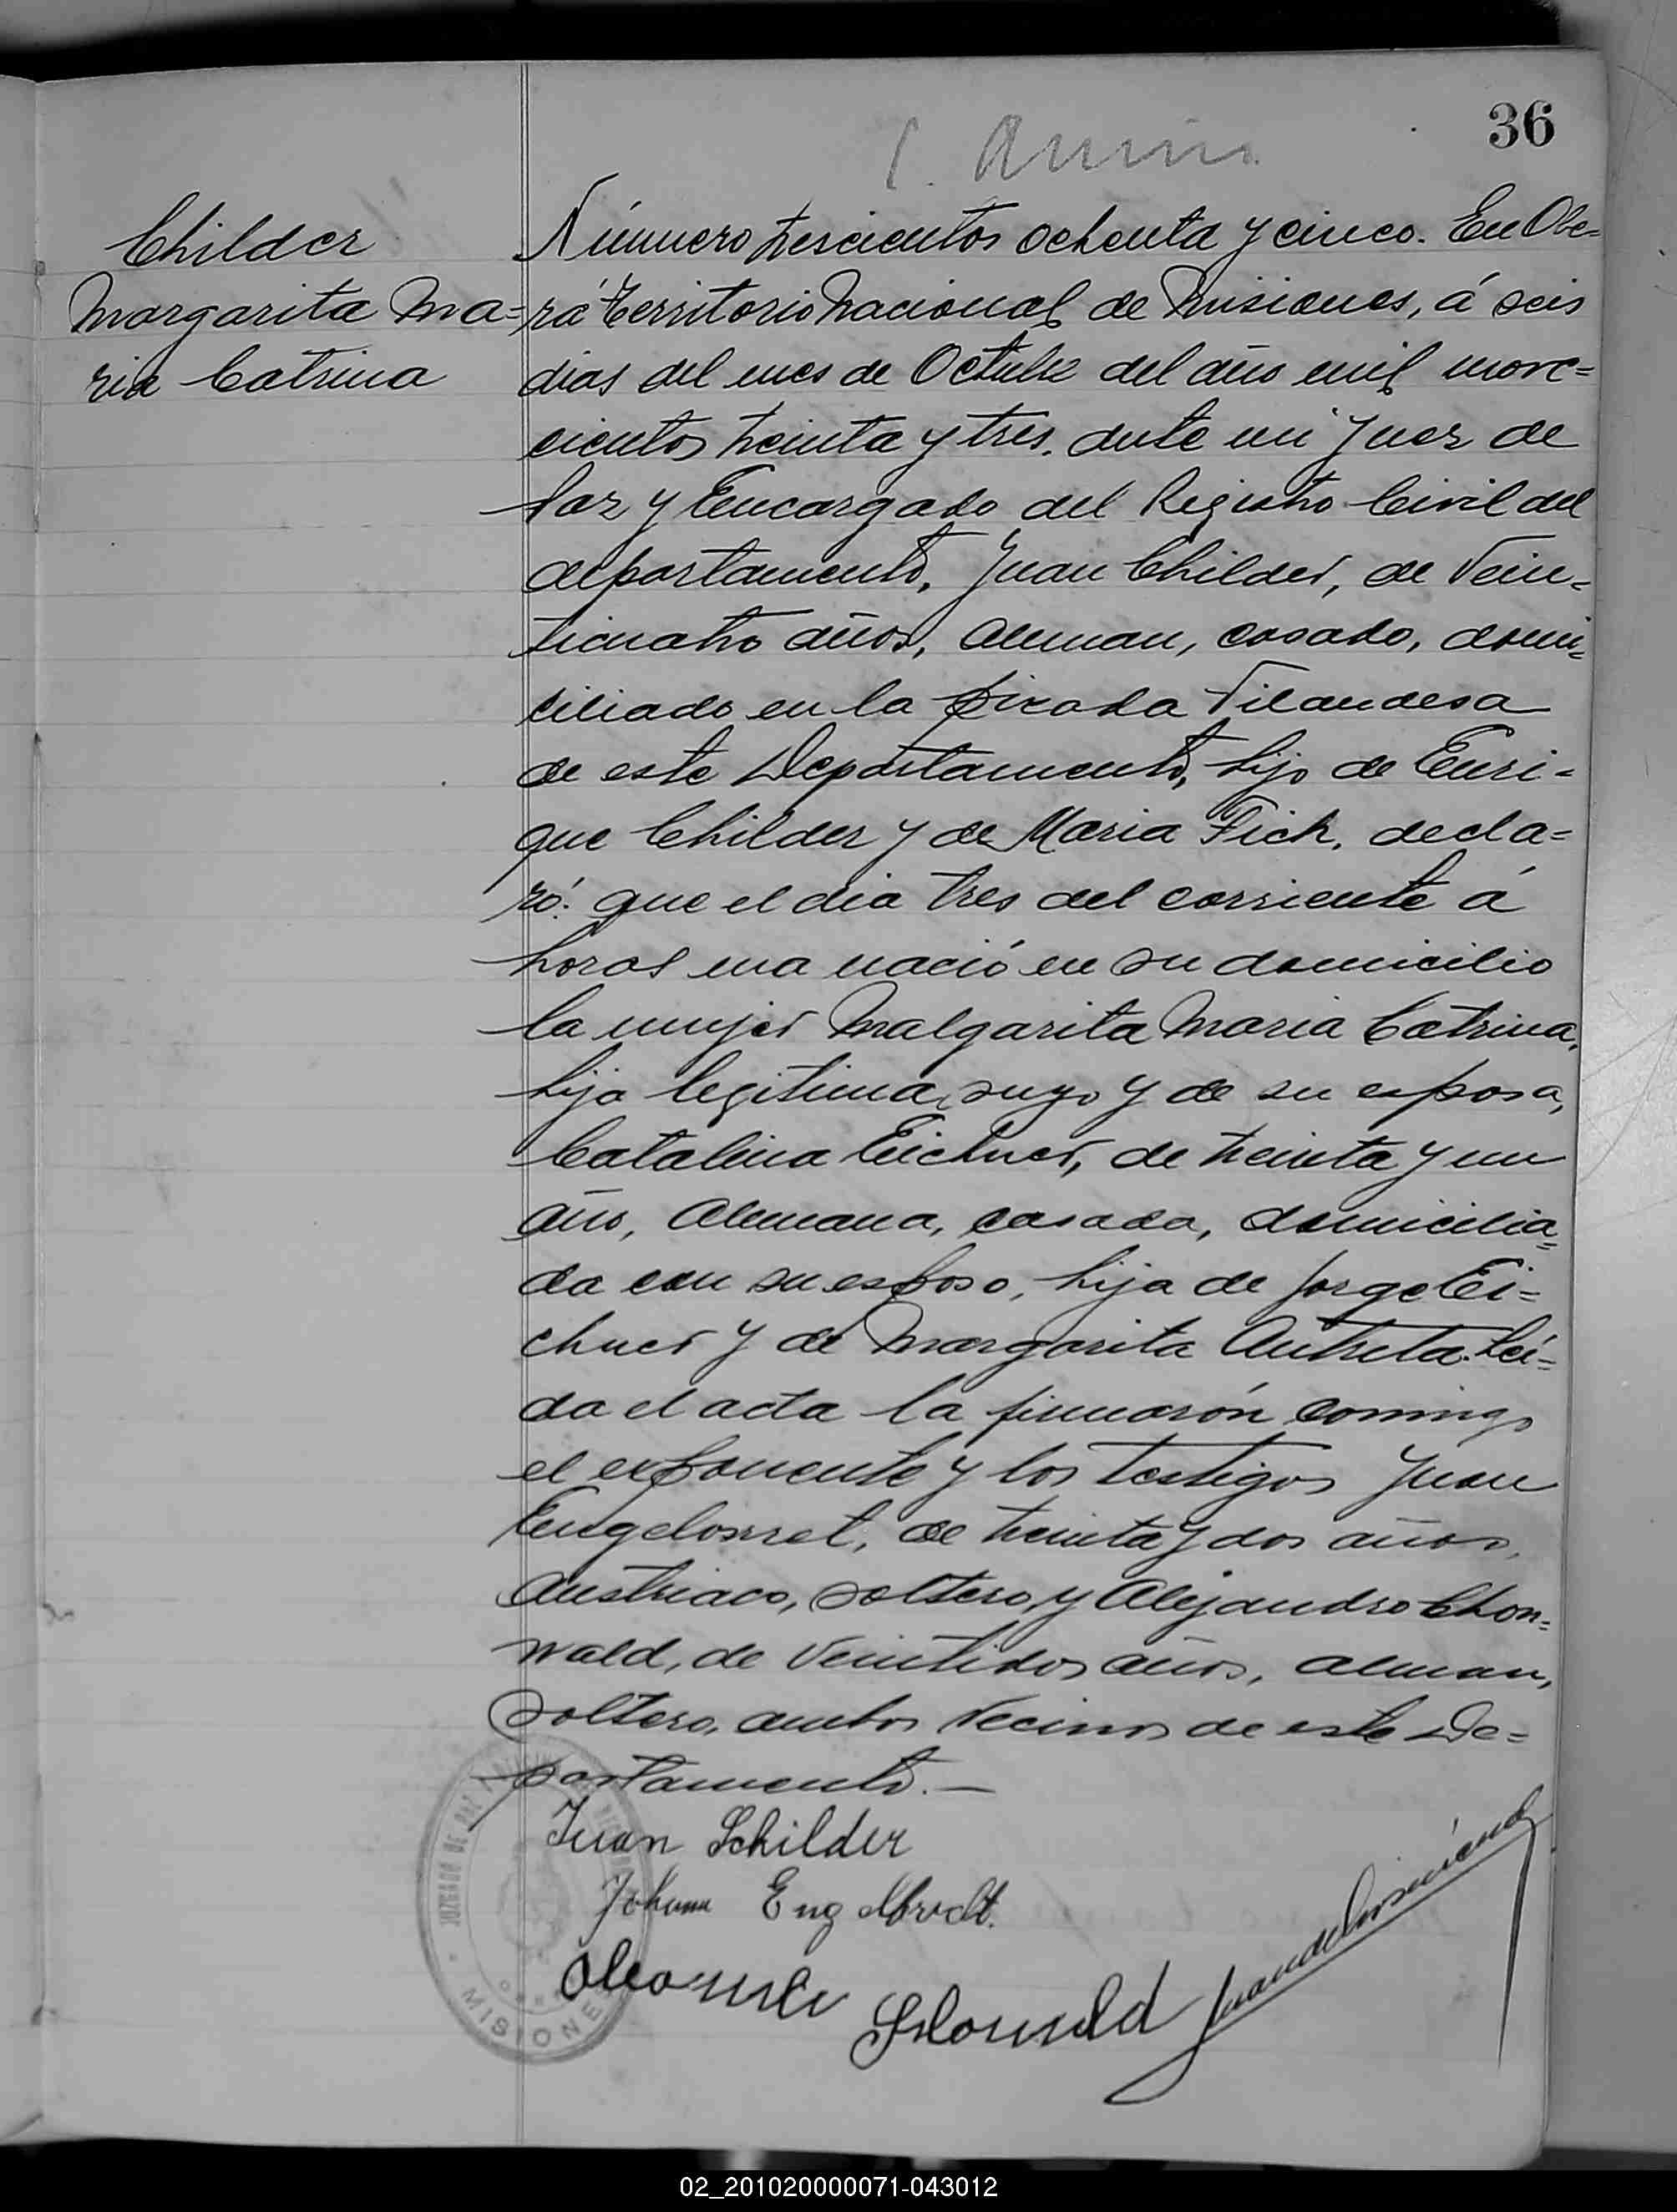 36
Childer
Margarita Ma=
ria Catrina
Número trescientos ochenta y cinco. En Obe=
rá Territorio Nacional de Misiones, á seis
dias del mes de Octubre del año mil nove=
cientos treinta y tres. ante mi Juez de
Paz y Encargado del Registro Civil del
departamento, Juan Childer, de Vein=
ticuatro años, Aleman, casado, domi=
ciliado en la picada Filandesa
de este Departamento, hijo de Enri=
que Childer y de Maria Fich, decla=
ró: que el dia tres del corriente á
horas una nació en su domicilio
la mujer Malgarita Maria Catrina,
hija legitima suya y de su esposa,
Catalina Eichner, de treinta y un
año, Alemana, casada, domicilia=
da con su esposo, hija de Jorge Ei=
chner y de Margarita Antreta. Leí=
da el acta la firmarón conmigo
el exponente y los testigos Juan
Engelosret, de treinta y dos años,
Austriaco, soltero, y Alejandro Chon=
wald, de Veintidos años, aleman,
Soltero, ambos Vecinos de este De=
partamento.—
Juan Schilder
Johann Engelbrecht.
JUZGADO DE PAZ
MISIONES
02_201020000071-043012